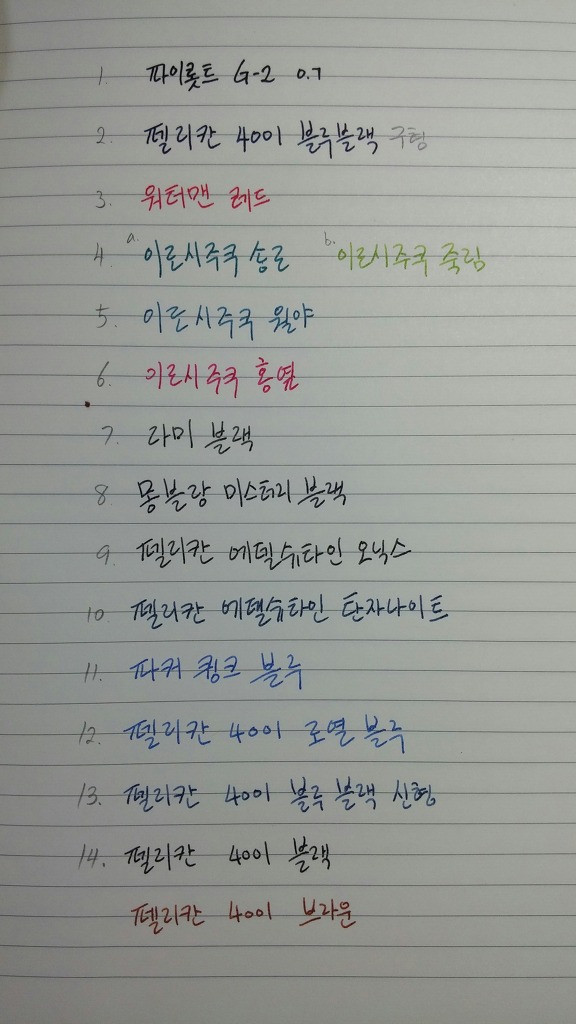 1. 파이롯트 G-2 0.7
2. 펠리칸 4001 블루블랙 구형
3. 워터맨 레드
4. a. 이로시주쿠 송로 b. 이로시주쿠 죽림
5. 이로시주쿠 월야
6. 이로시주쿠 홍엽
7. 라미 블랙
8. 몽블랑 미스터리 블랙
9. 펠리칸 에델슈타인 오닉스
10. 펠리칸 에델슈타인 탄자나이트
11. 파커 큉크 블루
12. 펠리칸 4001 로열 블루
13. 펠리칸 4001 블루 블랙 신형
14. 펠리칸 4001 블랙
펠리칸 4001 브라운